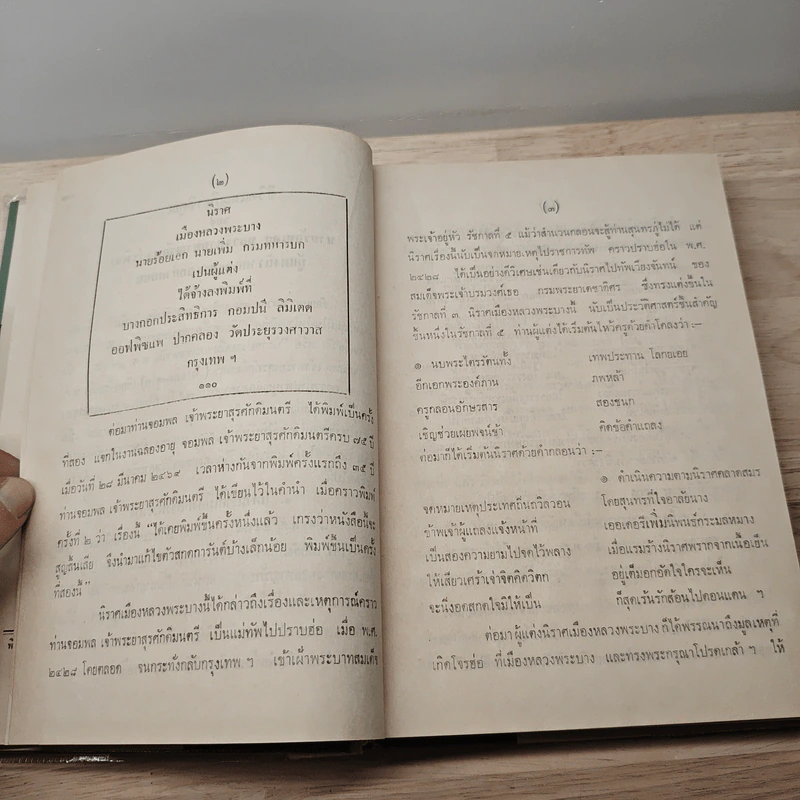 (๒)
นิราศ
เมืองหลวงพระบาง
นายร้อยเอก นายเพิ่ม กรมทหารบก
เปนผู้แต่ง
ได้จ้างลงพิมพ์ที่
บางกอกประสิทธิการ กอมปนี ลิมิเตด
ออฟฟิซแพ ปากคลอง วัดประยุรวงศาวาส
กรุงเทพ ฯ
๑๑๐
ต่อมาท่านจอมพล เจ้าพระยาสุรศักดิมนตรี ได้พิมพ์เป็นครั้ง
ที่สอง แจกในงานฉลองอายุ จอมพล เจ้าพระยาสุรศักดิมนตรีครบ ๗๕ ปี
เมื่อวันที่ ๒๘ มีนาคม ๒๔๖๙ เวลาห่างกันจากพิมพ์ครั้งแรกถึง ๓๕ ปี
ท่านจอมพล เจ้าพระยาสุรศักดิมนตรี ได้เขียนไว้ในคำนำ เมื่อคราวพิมพ์
ครั้งที่ ๒ ว่า เรื่องนี้ "ได้เคยพิมพ์ขึ้นครั้งหนึ่งแล้ว เกรงว่าหนังสือนี้จะ
สูญสิ้นเสีย จึงนำมาแก้ไขตัวสกดการันต์บ้างเล็กน้อย พิมพ์ขึ้นเป็นครั้ง
ที่สองนี้"
นิราศเมืองหลวงพระบางนี้ได้กล่าวถึงเรื่องและเหตุการณ์คราว
ท่านจอมพล เจ้าพระยาสุรศักดิมนตรี เป็นแม่ทัพไปปราบฮ่อ เมื่อ พ.ศ.
๒๔๒๘ โดยตลอด จนกระทั่งกลับกรุงเทพ ฯ เข้าเฝ้าพระบาทสมเด็จ
(๓)
พระเจ้าอยู่หัว รัชกาลที่ ๕ แม้ว่าสำนวนกลอนจะสู้ท่านสุนทรภู่ไม่ได้ แต่
นิราศเรื่องนี้นับเป็นจดหมายเหตุไปราชการทัพ คราวปราบฮ่อใน พ.ศ.
๒๔๒๘ ได้เป็นอย่างดีวิเศษเช่นเดียวกับนิราศไปทัพเวียงจันทน์ ของ
สมเด็จพระเจ้าบรมวงศ์เธอ กรมพระยาเดชาดิศร ซึ่งทรงแต่งขึ้นใน
รัชกาลที่ ๓ นิราศเมืองหลวงพระบางนี้ นับเป็นประวัติศาสตร์ชิ้นสำคัญ
ชิ้นหนึ่งในรัชกาลที่ ๕ ท่านผู้แต่งได้เริ่มต้นไหว้ครูด้วยคำโคลงว่า :—
๑ นบพระไตรรัตนทั้ง เทพประทาน โลกยเอย
อีกเอกพระองค์ภาน ภพหล้า
ครูกลอนอักษรสาร สองชนก
เชิญช่วยเผยพจน์ข้า คิดข้อคำแถลง
ต่อมาก็ได้เริ่มต้นนิราศด้วยคำกลอนว่า :—
๑ ดำเนินความตามนิราศคลาดสมร
จดหมายเหตุประเทศถิ่นถวิลวอน โดยสุนทรที่ใจอาลัยนาง
ข้าพเจ้าผู้แถลงแจ้งหน้าที่ เออเดอรีเพิ่มนิพนธ์กระมลหมาง
เป็นสองความยามไปจดไว้พลาง เมื่อแรมร้างนิราศพรากจากเนื้อเย็น
ให้เสียวเศร้าเจ่าจิตคิดวิตก อยู่เต็มอกอัดใจใครจะเห็น
จะนิ่งอดสกดใจมิให้เป็น ก็สุดเร้นรักส้อนไปดอนแดน ฯ
ต่อมาผู้แต่งนิราศเมืองหลวงพระบาง ก็ได้พรรณนาถึงมูลเหตุที่
เกิดโจรฮ่อ ที่เมืองหลวงพระบาง และทรงพระกรุณาโปรดเกล้า ฯ ให้